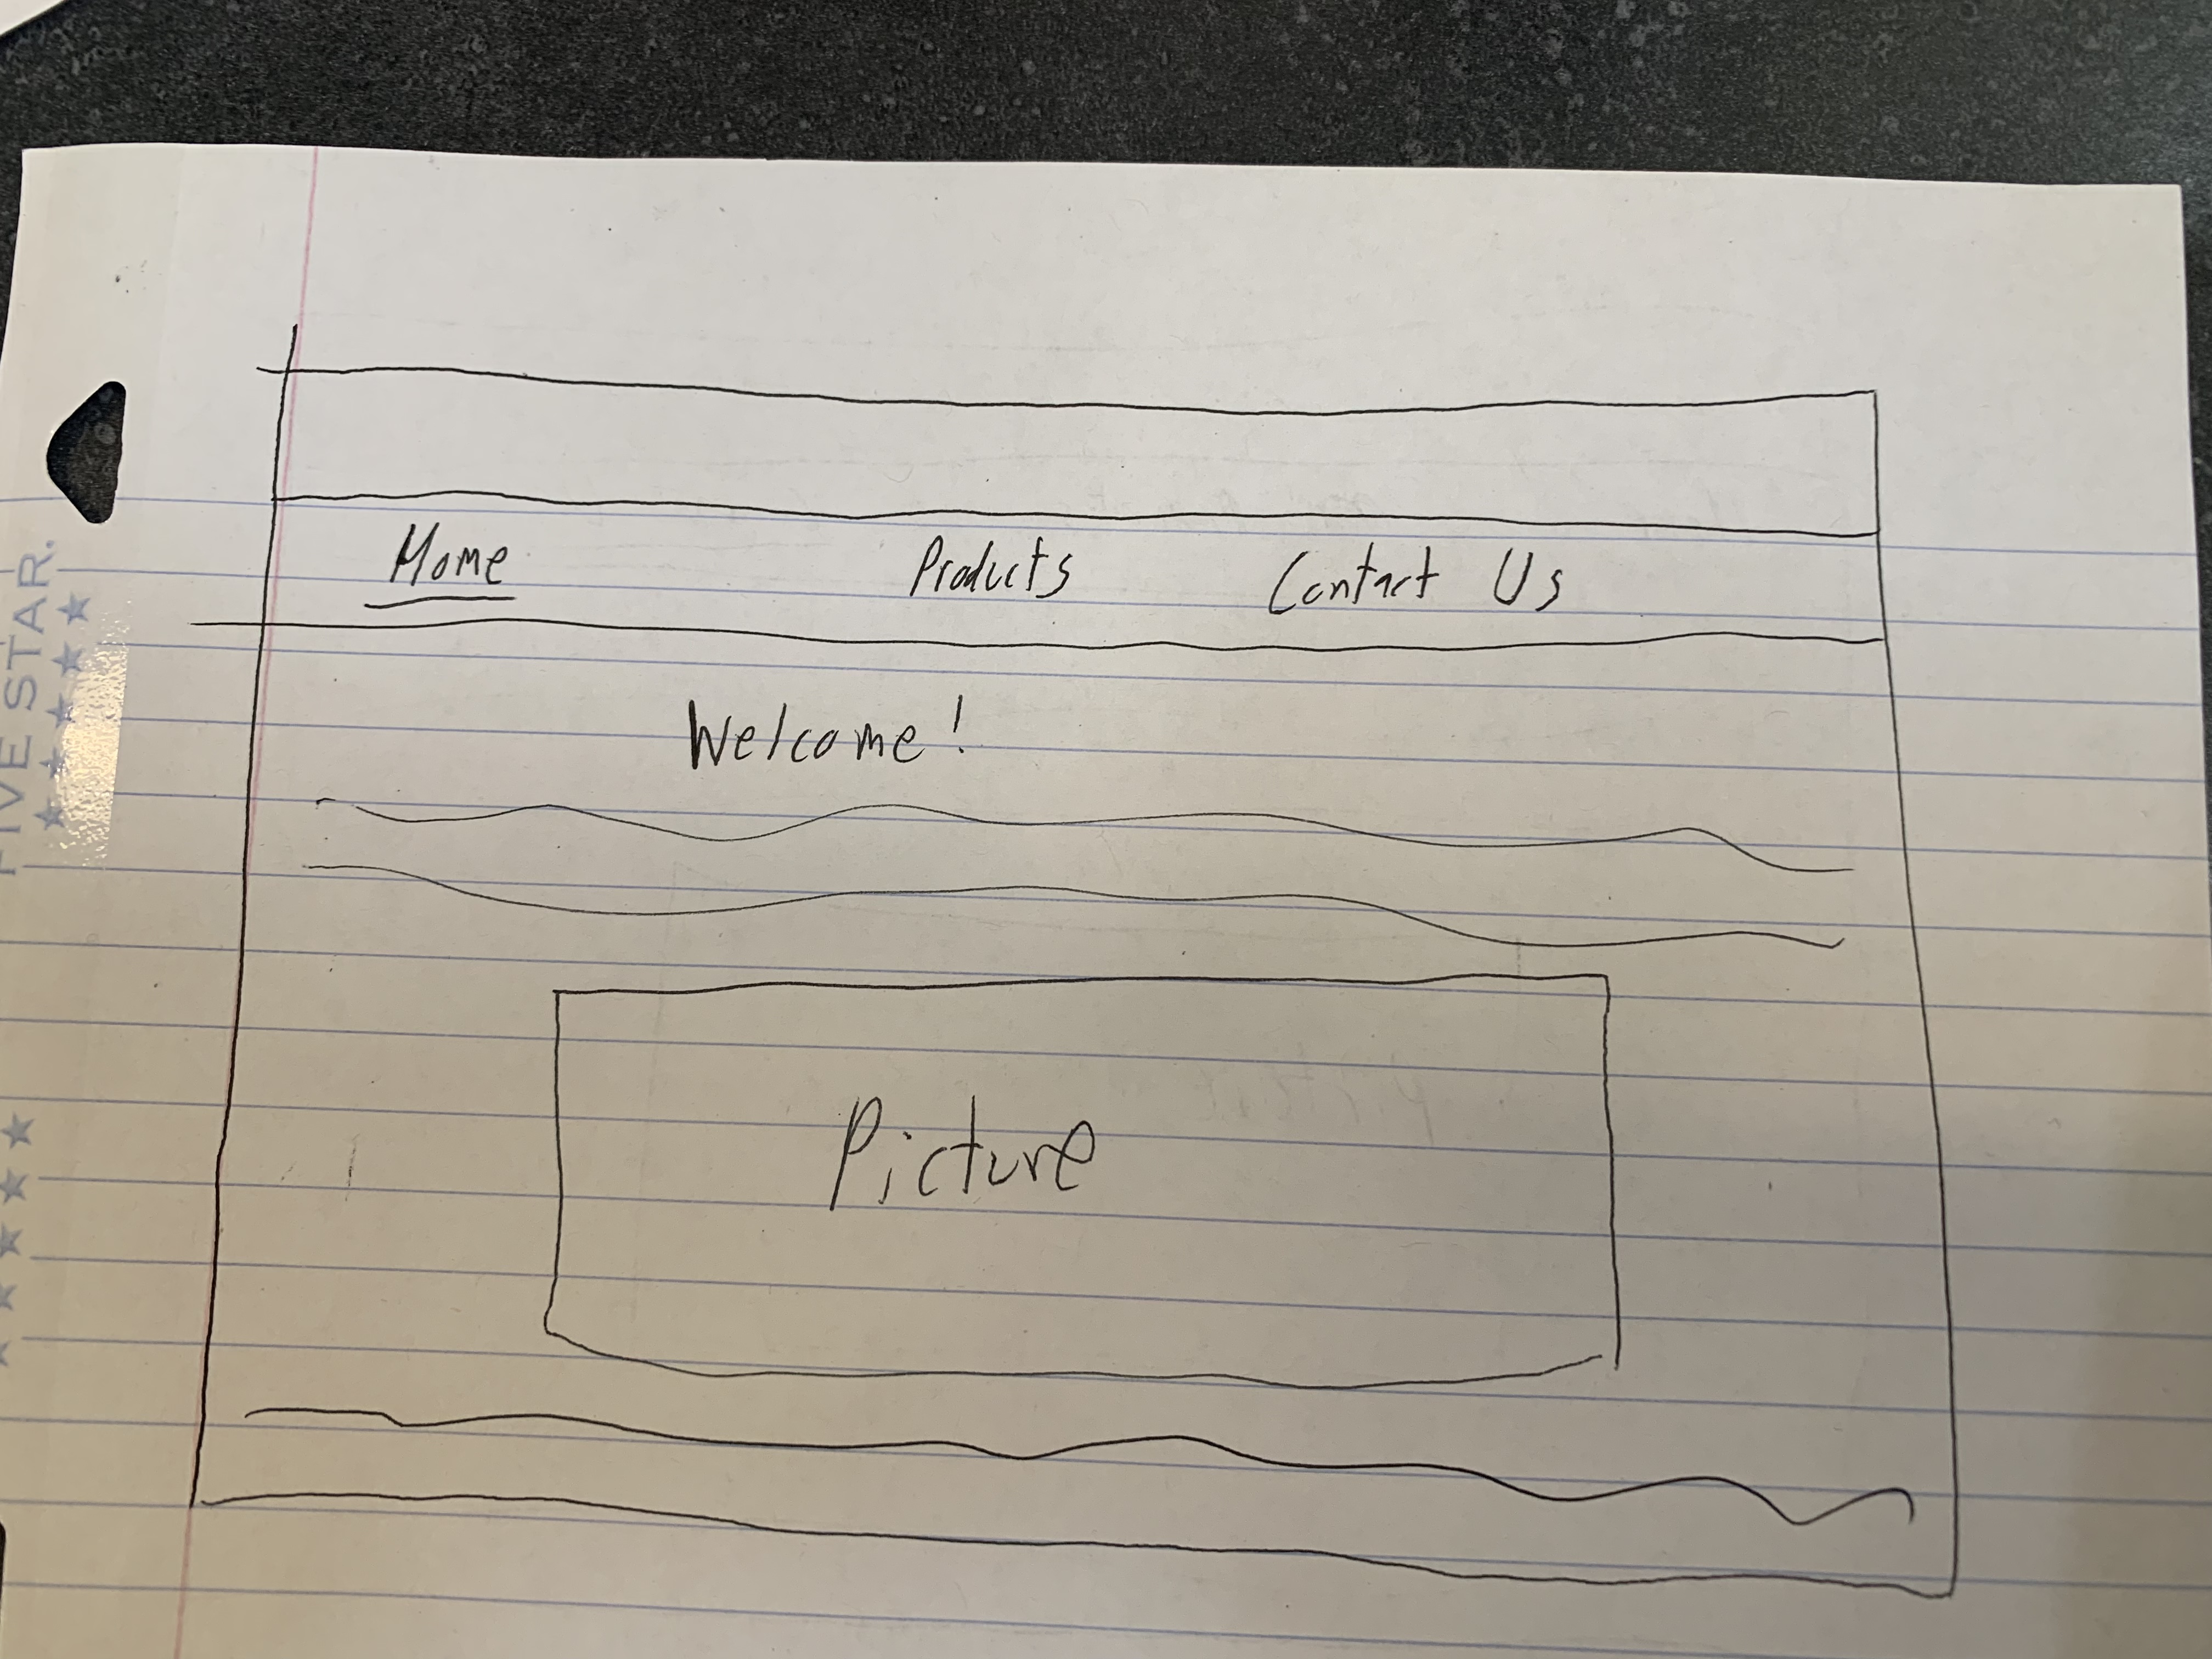 FIVE STAR.
Home Products Contact Us
Welcome!
Picture